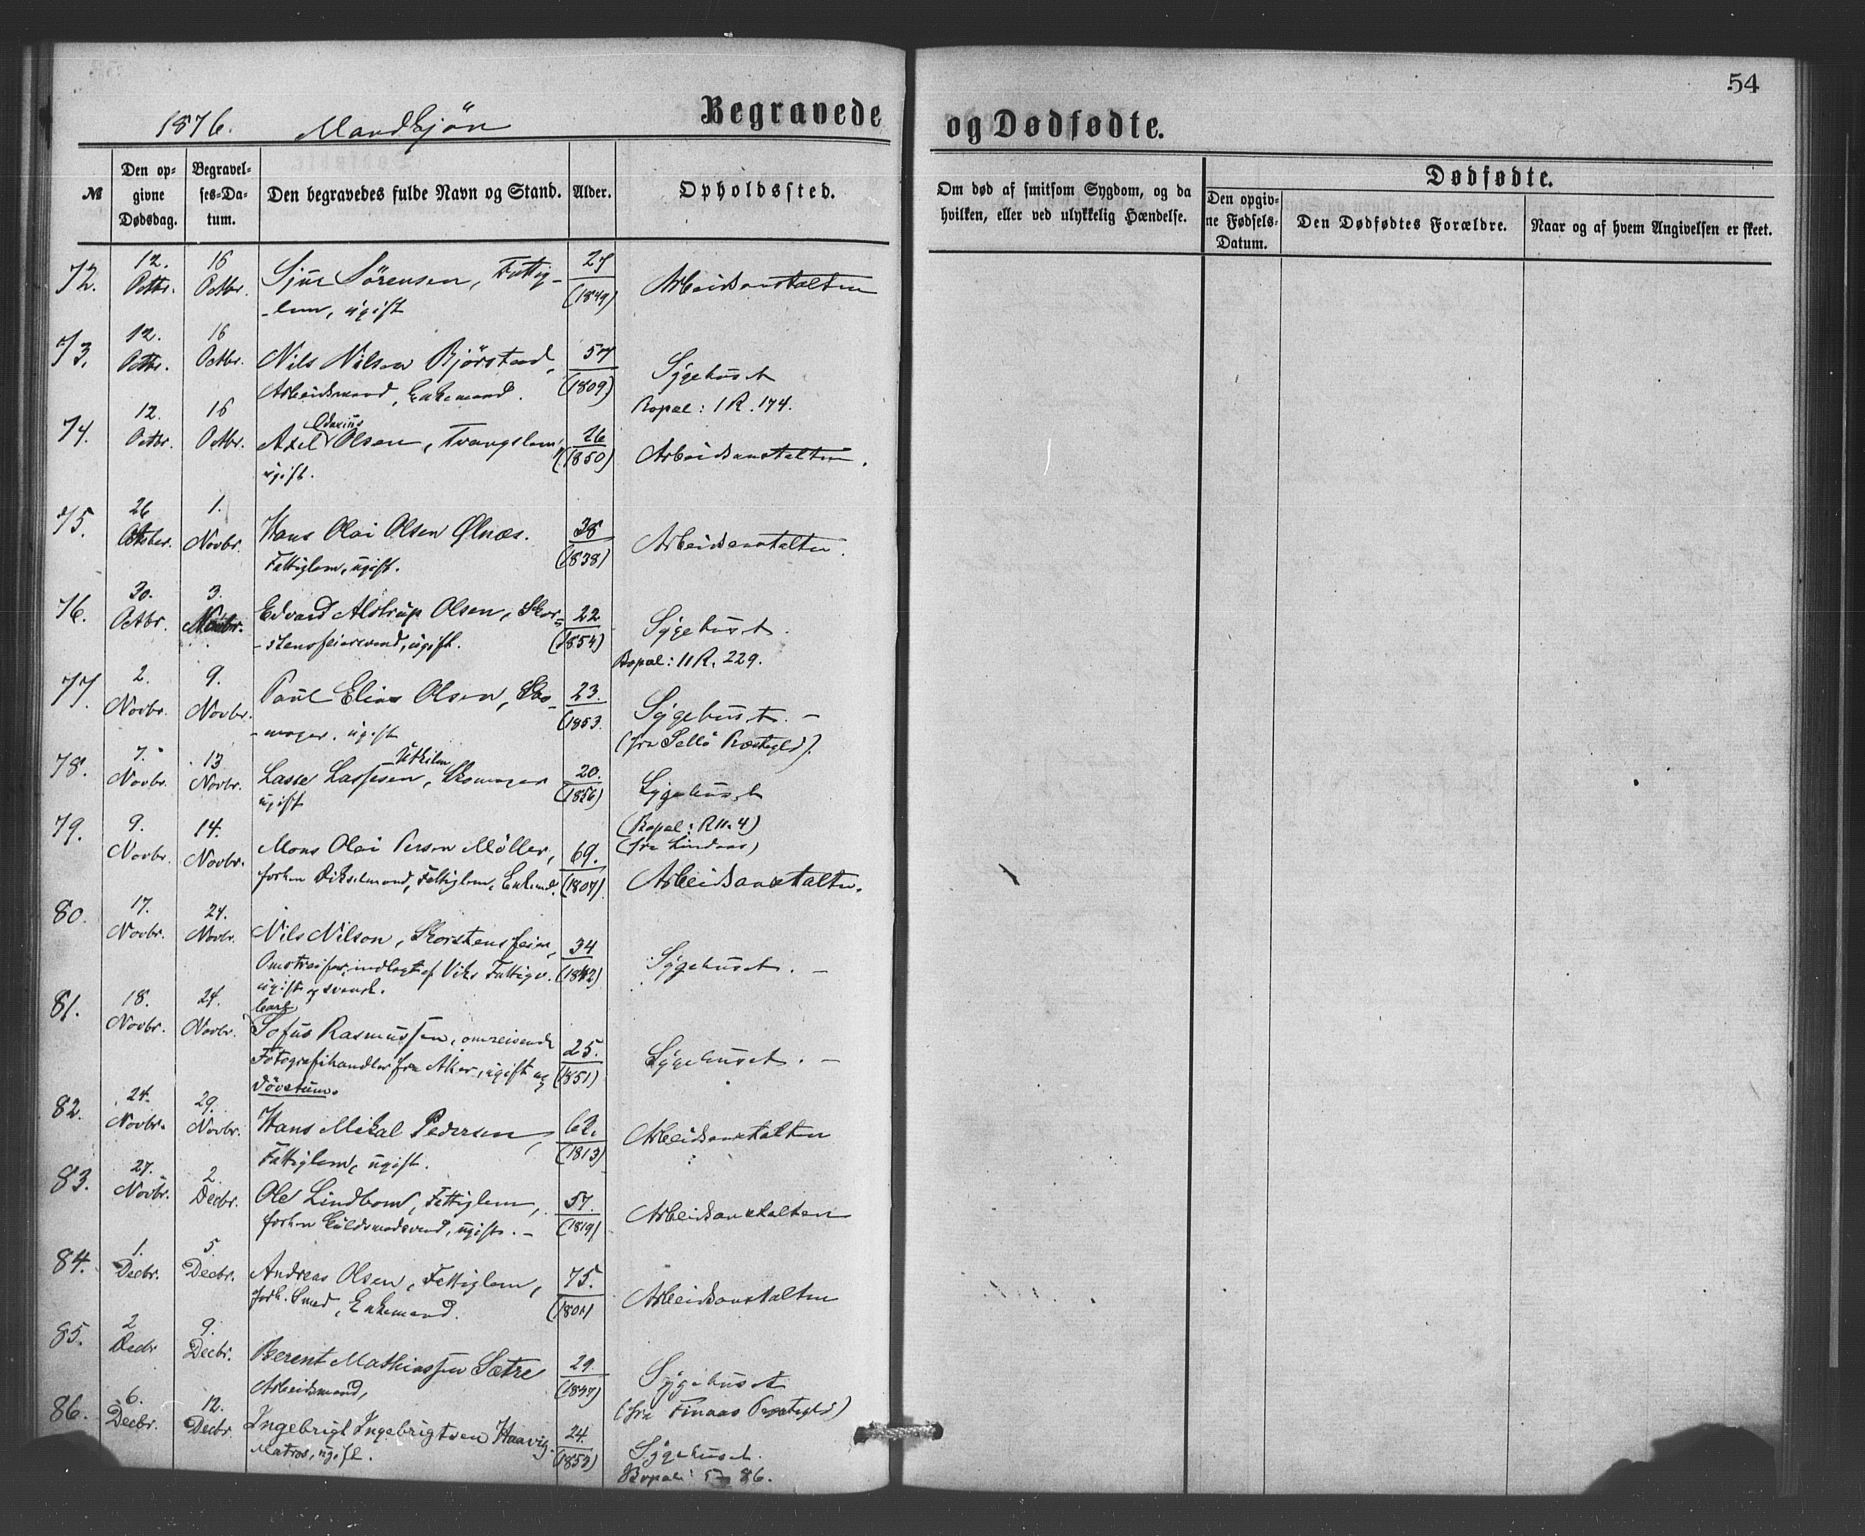 54
1876. Mandkjøn
Begravede og Dødfødte.
№ Den opgivne Dødsdag. Begravelses-Datum. Den begravedes fulde Navn og Stand. Alder. Opholdssted.
Om død af smitsom Sygdom, og da hvilken, eller ved ulykkelig Hændelse.
Dødfødte.
Den opgivne Fødsels-Datum. Den Dødfødtes Forældre. Naar og af hvem Angivelsen er skeet.
72. 12. Octbr. 16 Octbr. Sjur Sørensen, Fattig- 27 (1849) Arbeidsanstalten
-lem, ugift
73. 12. Octbr. 16 Octbr. Nils Nilsen Bjørstad, 57 (1809) Sygehuset
Arbeidsmand, Enkemand. Bopæl: 1 R. 174.
74. 12. Octbr. 16 Octbr. Axel Odavius Olsen, Tvangslem, 26 (1850) Arbeidsanstalten.
ugift.
75. 26 Octbr. 1. Novbr. Hans Olai Olsen Ølnæs. 38 (1838) Arbeidsanstalten.
Fattiglem, ugift.
76. 30. Octbr. 3. Novbr. Edvard Alstrup Olsen, Skor- 22 (1854) Sygehuset.
-stensfeiersvend, ugift. Bopæl: 11 R. 229.
77. 2. Novbr. 9. Novbr. Paul Elias Olsen, Sko- 23. (1853 Sygehuset. -
-mager, ugift (fra Sellö Præstegld).
78. 7. Novbr. 13 Novbr. Lasse Lassesen Utkilen, Skomager 20. (1856) Sygehuset
ugift (Bopæl: R 11. 4)
(fra Lindaas)
79. 9. Novbr. 14. Novbr. Mons Olai Persen Möller, 69. (1807) Arbeidsanstalten.
forhen Vikselmand, Fattiglem, Enkemd.
80. 17. Novbr. 24. Novbr. Nils Nilson, Skorstensfeier, 34 (1842) Sygehuset. -
Omstreifer, indlagt af Viks Fattigv.
ugift og svensk.
81. 18. Novbr. 24. Novbr. Carl Sofus Rasmussen, omreisende 25. (1851) Sygehuset. -
Fotografihandler fra Aker, ugift og
Dövstum.
82. 24. Novbr. 29. Novbr. Hans Mikal Pedersen, 62. (1813) Arbeidsanstalten
Fattiglem, ugift.
83. 27. Novbr. 2. Decbr. Ole Lindbom, Fattiglem, 57. (1819) Arbeidsanstalten
forhen Guldsmedsvend, ugift. -
84. 1. Decbr. 5. Decbr. Andreas Olsen, Fattiglem, 75. (1801) Arbeidsanstalten
forh. Smed, Enkemand.
85. 2 Decbr 9. Decbr. Berent Mathiassen Sætre 29. (1847) Sygehuset
Arbeidsmand, (fra Finaas Præstegld)
86. 6. Decbr. 12. Decbr. Ingebrigt Ingebrigtsen Haavig. 24. (1852) Sygehuset.
Matros, ugift. Bopæl: 5 86.